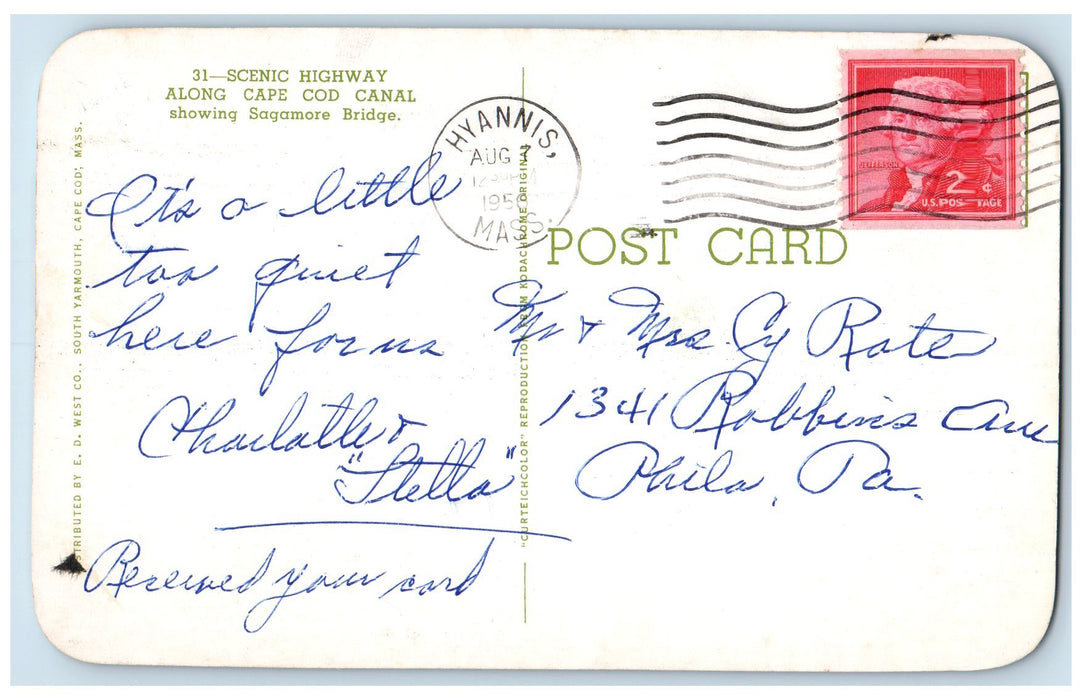 31—SCENIC HIGHWAY
ALONG CAPE COD CANAL
showing Sagamore Bridge.
HYANNIS,
AUG 7
1956
MASS.
JEFFERSON
2¢
U.S. POSTAGE
POST CARD
It's a little
too quiet
here for us
Charlotte &
"Stella"
Received your card
Mr + Mrs. Cy Rate
1341 Robbins Ave
Phila, Pa.
STRIBUTED BY E. D. WEST CO., SOUTH YARMOUTH, CAPE COD, MASS.
"CURTEICHCOLOR" REPRODUCTION FROM KODACHROME ORIGINAL